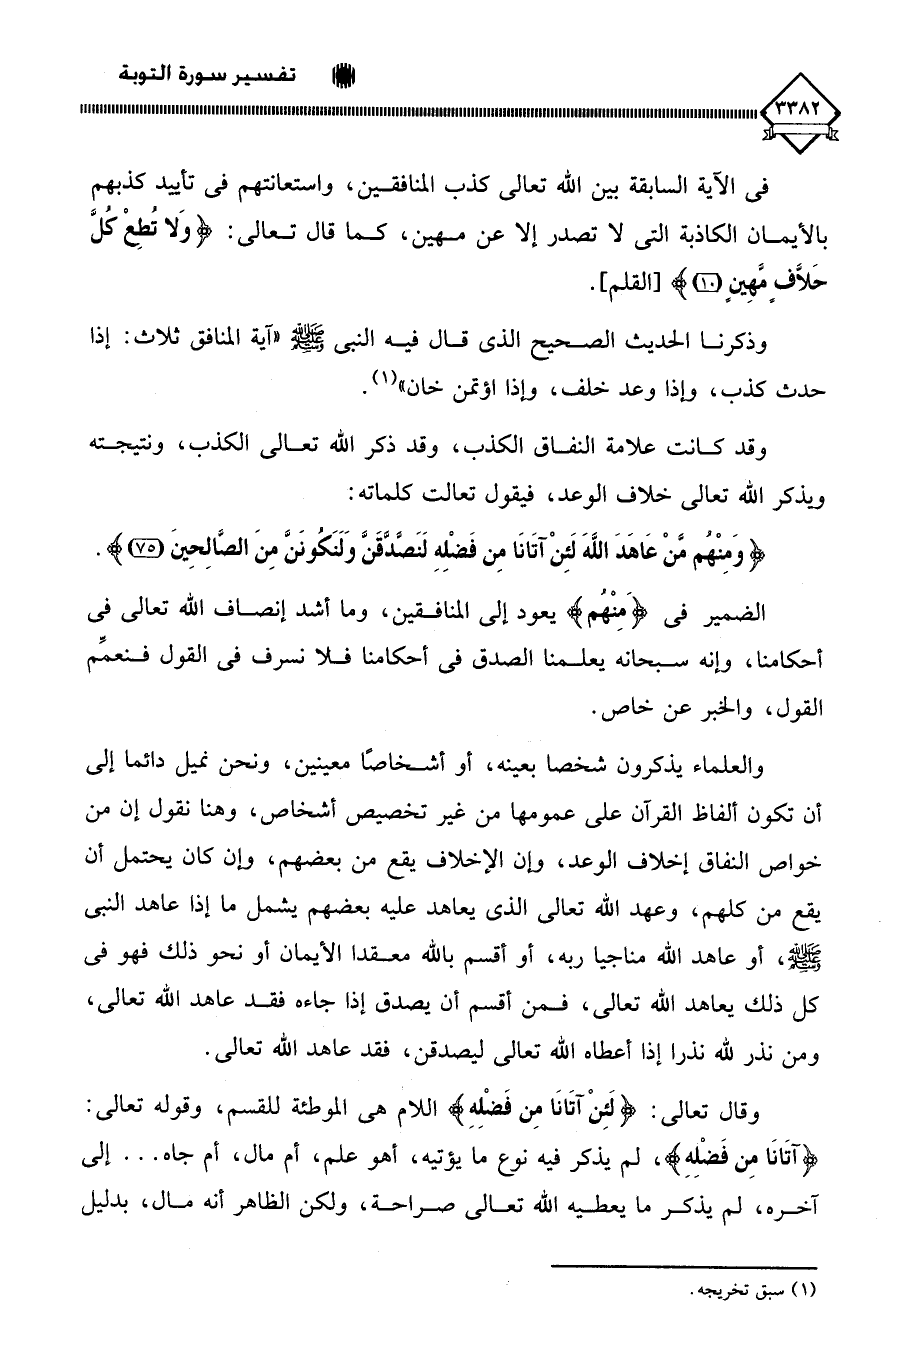 تفسير سورة التوبة
٣٣٨٢
فى الآية السابقة بين الله تعالى كذب المنافقين، واستعانتهم فى تأييد كذبهم
بالأيمان الكاذبة التى لا تصدر إلا عن مهين، كما قال تعالى: ﴿وَلا تُطِعْ كُلَّ
حَلاَّفٍ مَّهِينٍ (١٠)﴾ [القلم].
وذكرنا الحديث الصحيح الذى قال فيه النبى ﷺ «آية المنافق ثلاث: إذا
حدث كذب، وإذا وعد خلف، وإذا اؤتمن خان»(١).
وقد كانت علامة النفاق الكذب، وقد ذكر الله تعالى الكذب، ونتيجته
ويذكر الله تعالى خلاف الوعد، فيقول تعالت كلماته:
﴿وَمِنْهُم مَّنْ عَاهَدَ اللَّهَ لَئِنْ آتَانَا مِن فَضْلِهِ لَنَصَّدَّقَنَّ وَلَنَكُونَنَّ مِنَ الصَّالِحِينَ (٧٥)﴾.
الضمير فى ﴿مِنْهُم﴾ يعود إلى المنافقين، وما أشد إنصاف الله تعالى فى
أحكامنا، وإنه سبحانه يعلمنا الصدق فى أحكامنا فلا نسرف فى القول فنعمِّم
القول، والخبر عن خاص.
والعلماء يذكرون شخصا بعينه، أو أشخاصًا معينين، ونحن نميل دائما إلى
أن تكون ألفاظ القرآن على عمومها من غير تخصيص أشخاص، وهنا نقول إن من
خواص النفاق إخلاف الوعد، وإن الإخلاف يقع من بعضهم، وإن كان يحتمل أن
يقع من كلهم، وعهد الله تعالى الذى يعاهد عليه بعضهم يشمل ما إذا عاهد النبى
ﷺ، أو عاهد الله مناجيا ربه، أو أقسم بالله معقدا الأيمان أو نحو ذلك فهو فى
كل ذلك يعاهد الله تعالى، فمن أقسم أن يصدق إذا جاءه فقد عاهد الله تعالى،
ومن نذر لله نذرا إذا أعطاه الله تعالى ليصدقن، فقد عاهد الله تعالى.
وقال تعالى: ﴿لَئِنْ آتَانَا مِن فَضْلِهِ﴾ اللام هى الموطئة للقسم، وقوله تعالى:
﴿آتَانَا مِن فَضْلِهِ﴾، لم يذكر فيه نوع ما يؤتيه، أهو علم، أم مال، أم جاه... إلى
آخره، لم يذكر ما يعطيه الله تعالى صراحة، ولكن الظاهر أنه مال، بدليل
(١) سبق تخريجه.